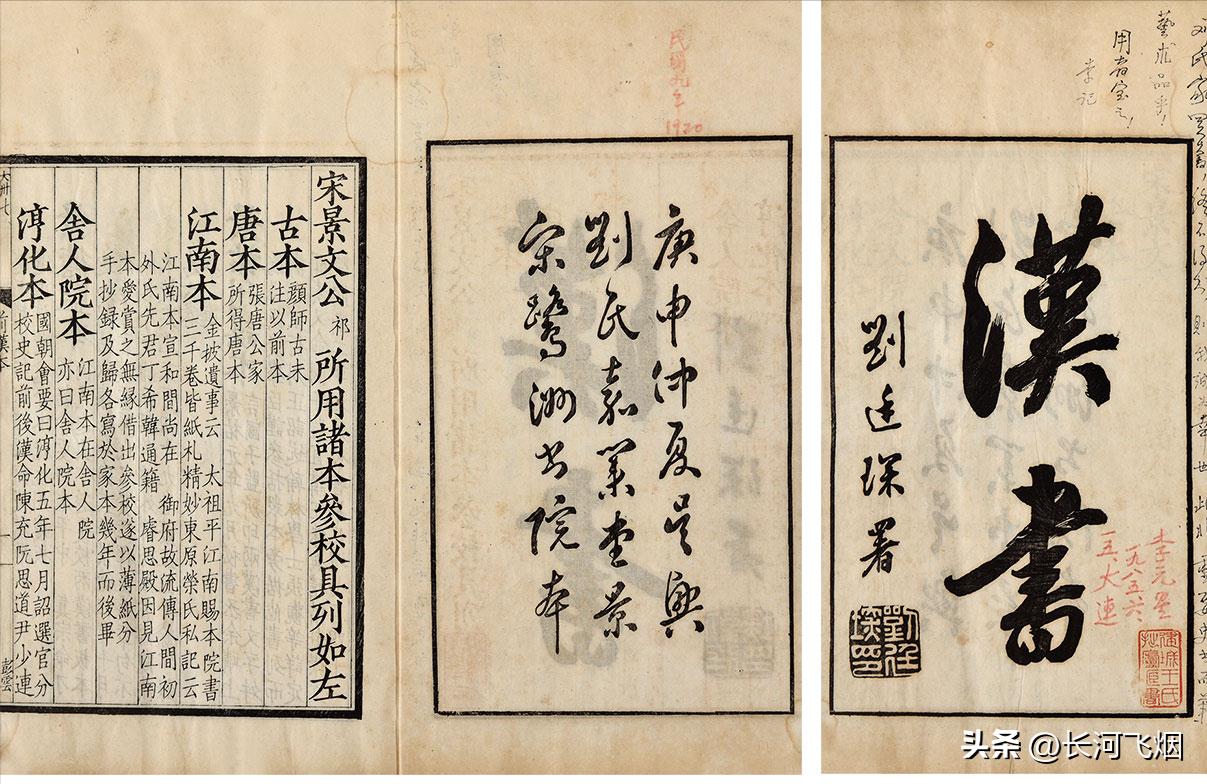 用者宝之!
漢書
劉廷琛署
劉廷琛印
一九八五、六
一五、大連
民國九年
1920
庚申仲夏吳興
劉氏嘉業堂景
宋鷺洲书院本
宋景文公祁所用諸本參校具列如左
古本
顔師古未
注以前本
唐本
張唐公家
所得唐本
江南本
金披遺事云 太祖平江南賜本院書
三千卷皆紙札精妙東原榮氏私記云
江南本宣和間尚在 御府故流傳人間初
外氏先君丁希韓通籍 睿思殿因見江南
本愛賞之無縁借出參校遂以薄紙分
手抄録及歸各寫於家本幾年而後畢
舍人院本
江南本在舍人院
亦曰舍人院本
淳化本
國朝會要曰淳化五年七月詔選官分
校史記前後漢命陳充阮思道尹少連
头条 @长河飞烟